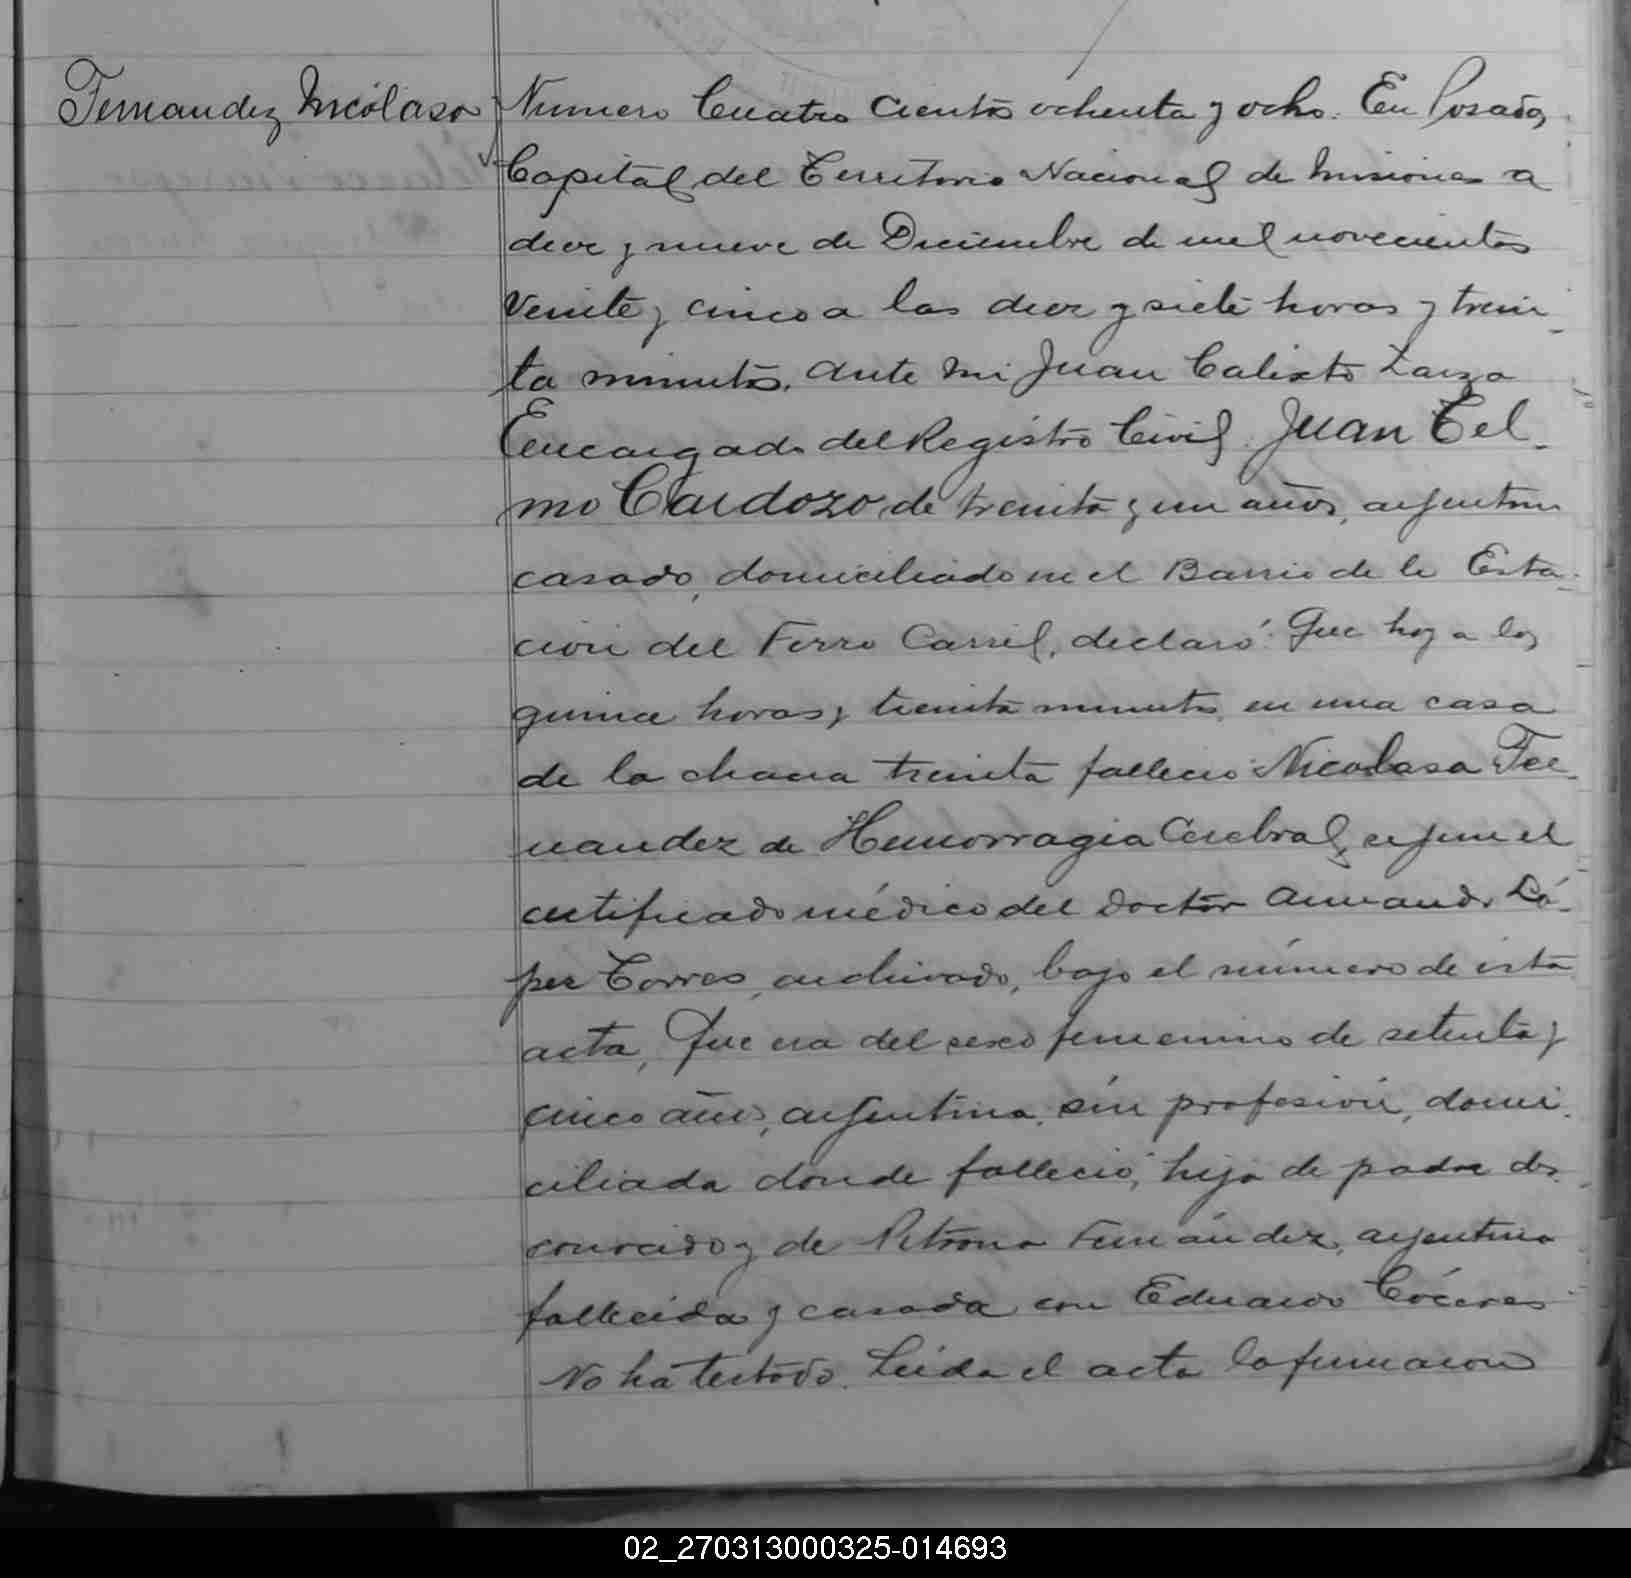 Fernandez Nicólasa
Numero Cuatro cientos ochenta y ocho. En Posadas,
Capital del Territorio Nacional de Misiones a
diez y nueve de Diciembre de mil novecientos
veinte y cinco a las diez y siete horas y trein-
ta minutos, ante mi Juan Calixto
Encargado del Registro Civil, Juan Tel-
mo Cardozo, de treinta y un años, argentino
casado, domiciliado en el Barrio de la Esta-
cion del Ferro Carril, declaró: Que hoy a las
quince horas y treinta minutos en una casa
de la chacra treinta fallecio Nicolasa Fer-
nandez de Hemorragia Cerebral, segun el
certificado médico del Doctor Armando Ló-
pez Torres, archivado, bajo el número de esta
acta, Que era del sexo femenino de setenta y
cinco años, argentina, sin profesión, domi-
ciliada donde falleció, hija de padre des-
conocido y de Petrona Fernández, argentina
fallecida y casada con Eduardo Cáceres
No ha testado. Leida el acta la firmaron
02_270313000325-014693